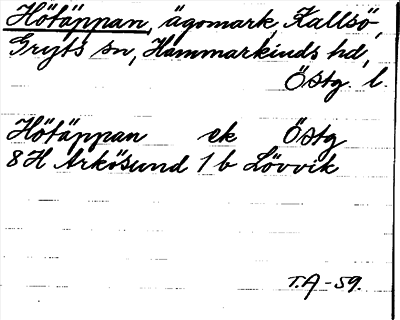 Hötäppan, ägomark, Kallsö,
Gryts sn, Hammarkinds hd,
Östg. l.
Hötäppan ek Östg
8H Arkösund 1 b Lövvik
T.A-59.